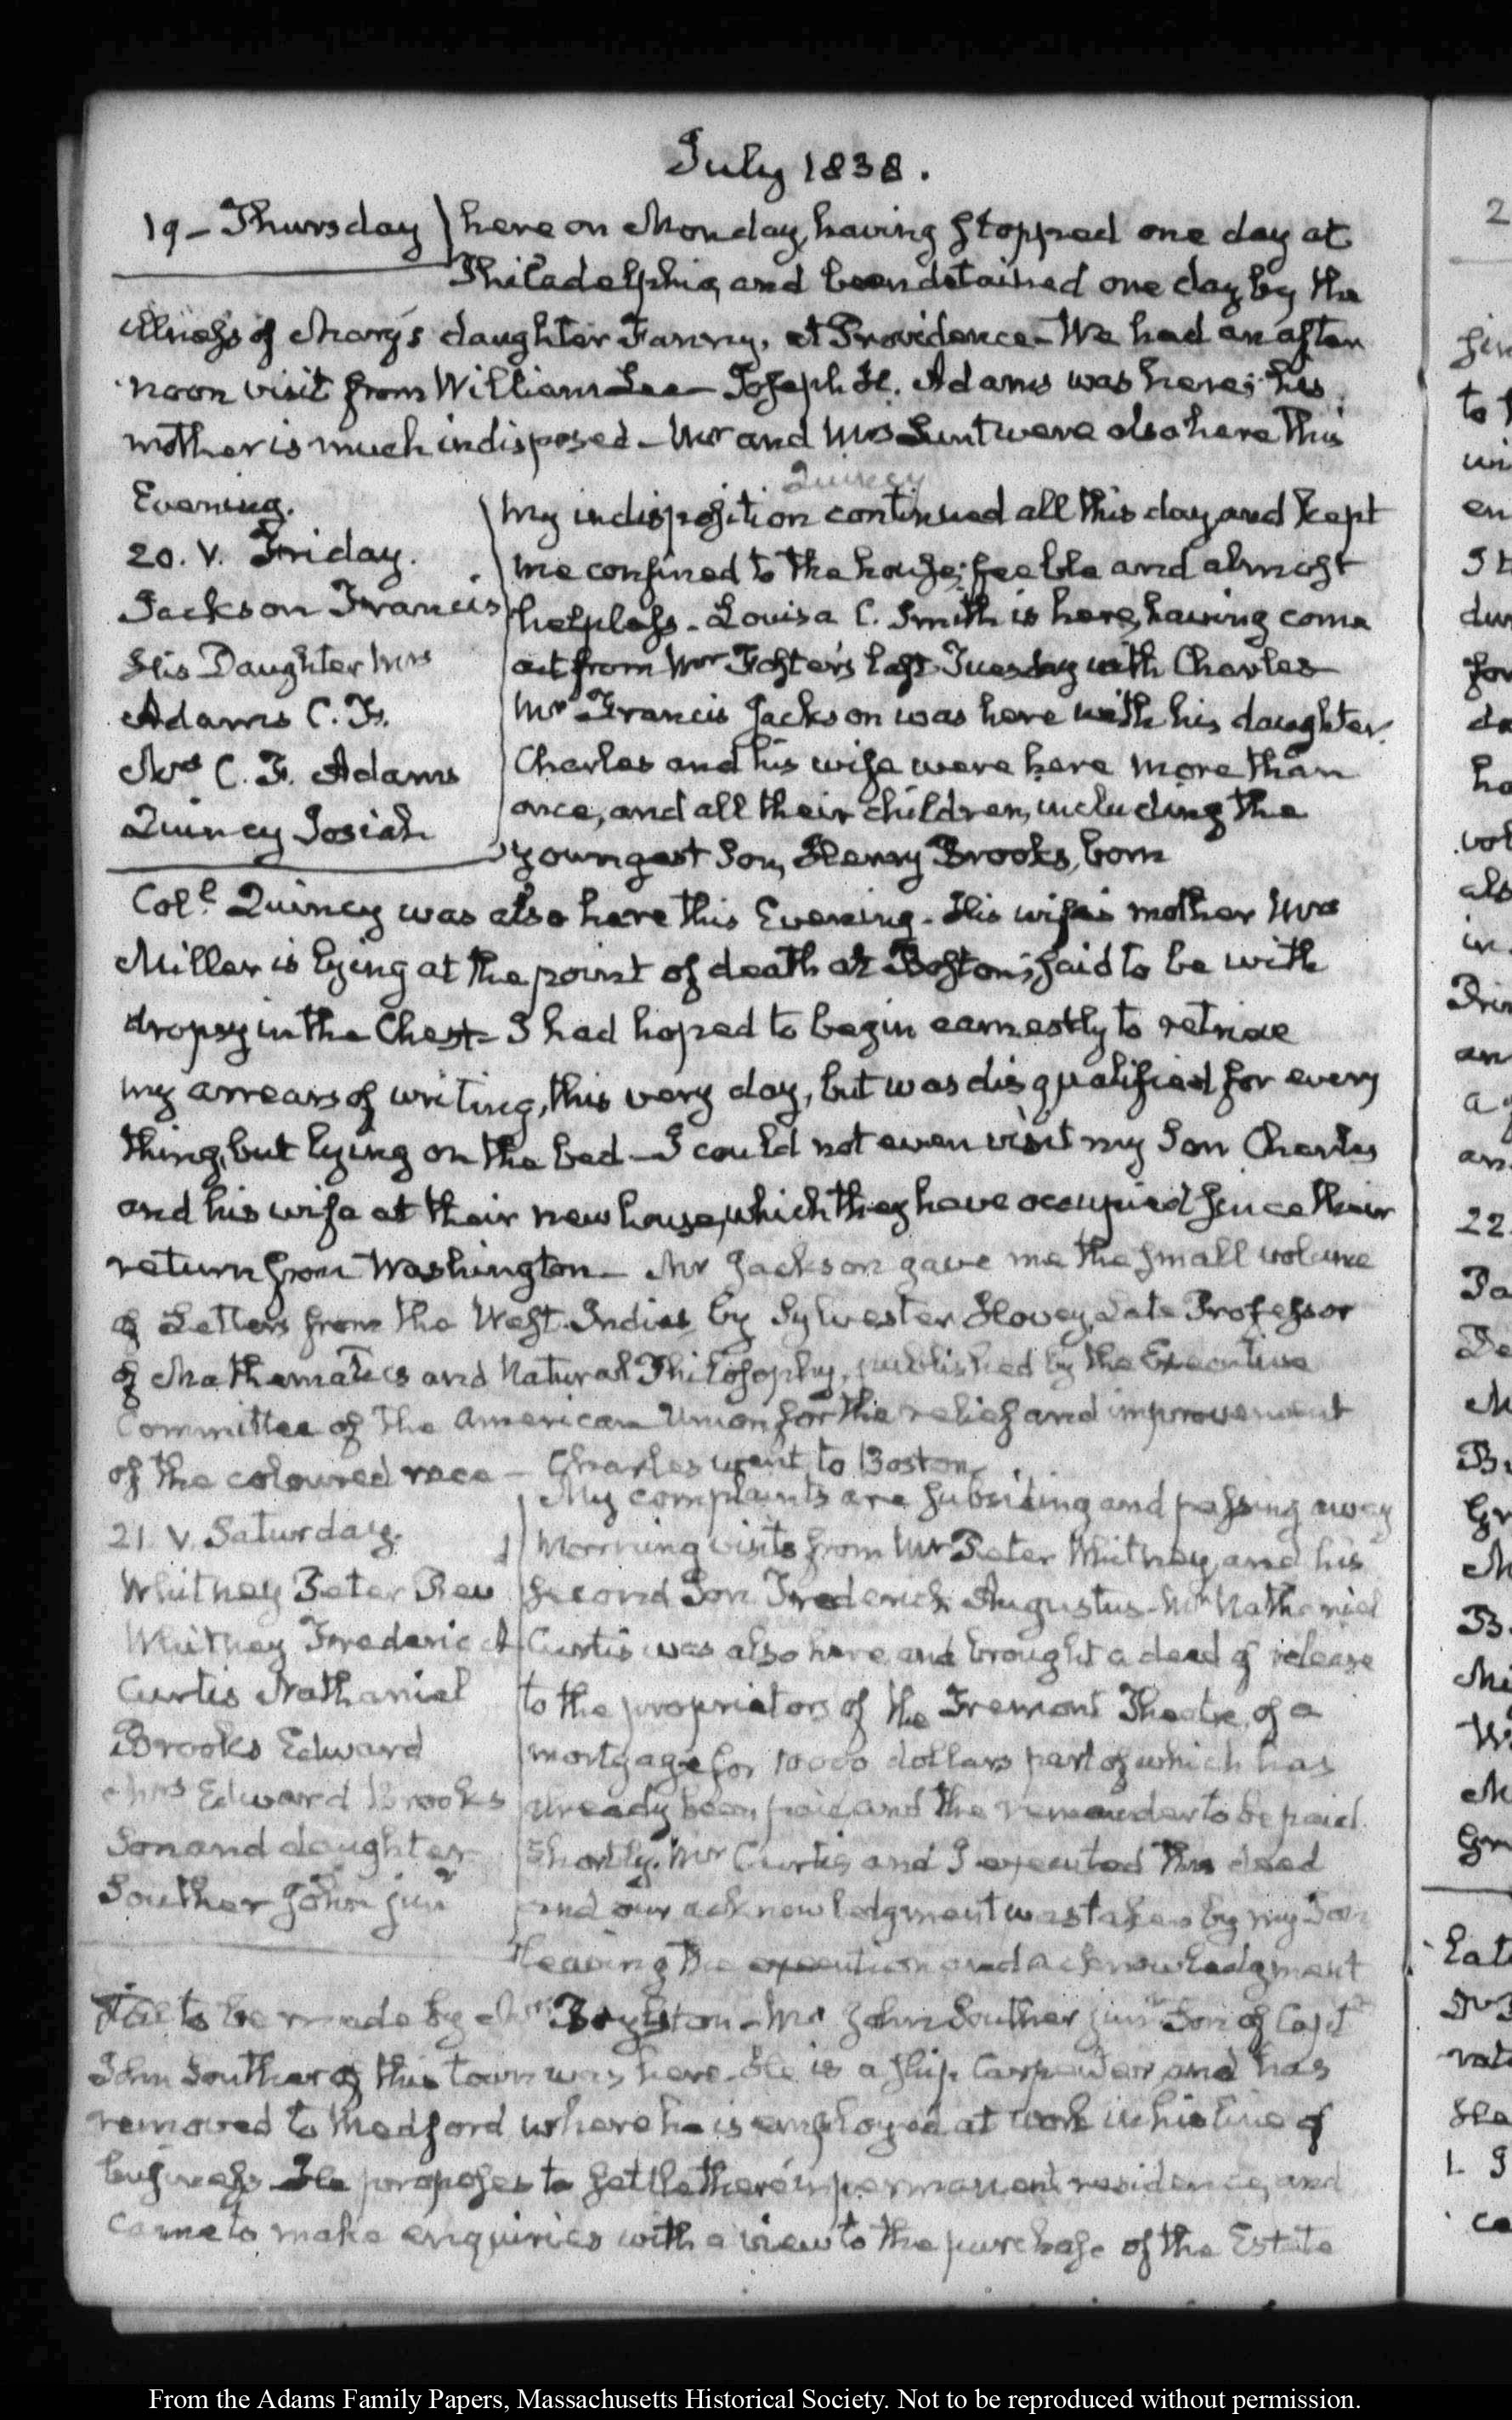 July 1838.
19 - Thursday
here on Monday, having stopped one day at
Philadelphia, and been detained one day by the
illness of Mary's daughter Fanny, at Providence - We had an after
noon visit from William Lee - Joseph H. Adams was here; his
mother is much indisposed - Mr and Mrs Lunt were also here this
Evening.
20. V. Friday.
Jackson Francis
His Daughter Mrs
Adams C. F.
Mrs C. F. Adams
Quincy Josiah
Quincy
My indisposition continued all this day and kept
me confined to the house; feeble and almost
helpless - Louisa C. Smith is here, having come
out from Mr Foster's last Tuesday with Charles
Mr Francis Jackson was here with his daughter.
Charles and his wife were here more than
once, and all their children, including the
youngest Son, Henry Brooks, born
Coll. Quincy was also here this Evening - His wife's mother Mrs
Miller is lying at the point of death at Boston; said to be with
dropsy in the Chest - I had hoped to begin earnestly to retrieve
my arrears of writing, this very day, but was disqualified for every
thing, but lying on the bed - I could not even visit my Son Charles
and his wife at their new house, which they have occupied since their
return from Washington - Mr Jackson gave me the small volume
of Letters from the West-Indies, by Sylvester Hovey, Late Professor
of Mathematics and Natural Philosophy, published by the Executive
Committee of the American Union for the relief and improvement
of the coloured race - Charles went to Boston.
21. V. Saturday.
Whitney Peter Rev
Whitney Frederic A
Curtis Nathaniel
Brooks Edward
Mrs Edward Brooks
Son and daughter
Souther John junr
My complaints are subsiding and passing away
Morning visits from Mr Peter Whitney, and his
second Son Frederick Augustus - Mr Nathaniel
Curtis was also here and brought a deed of release
to the proprietors of the Tremont Theatre, of a
mortgage for 10000 dollars part of which has
already been paid and the remainder to be paid
shortly. Mr Curtis and I executed this deed
and our acknowledgment was taken by my Son
leaving the execution and acknowledgment
to be made by Mr Boylston - Mr John Souther junr Son of Capt
John Souther of this town was here. He is a ship Carpenter and has
removed to Medford where he is employed at work in his line of
business - He proposes to settle there in permanent residence, and
came to make enquiries with a view to the purchase of the Estate
From the Adams Family Papers, Massachusetts Historical Society. Not to be reproduced without permission.